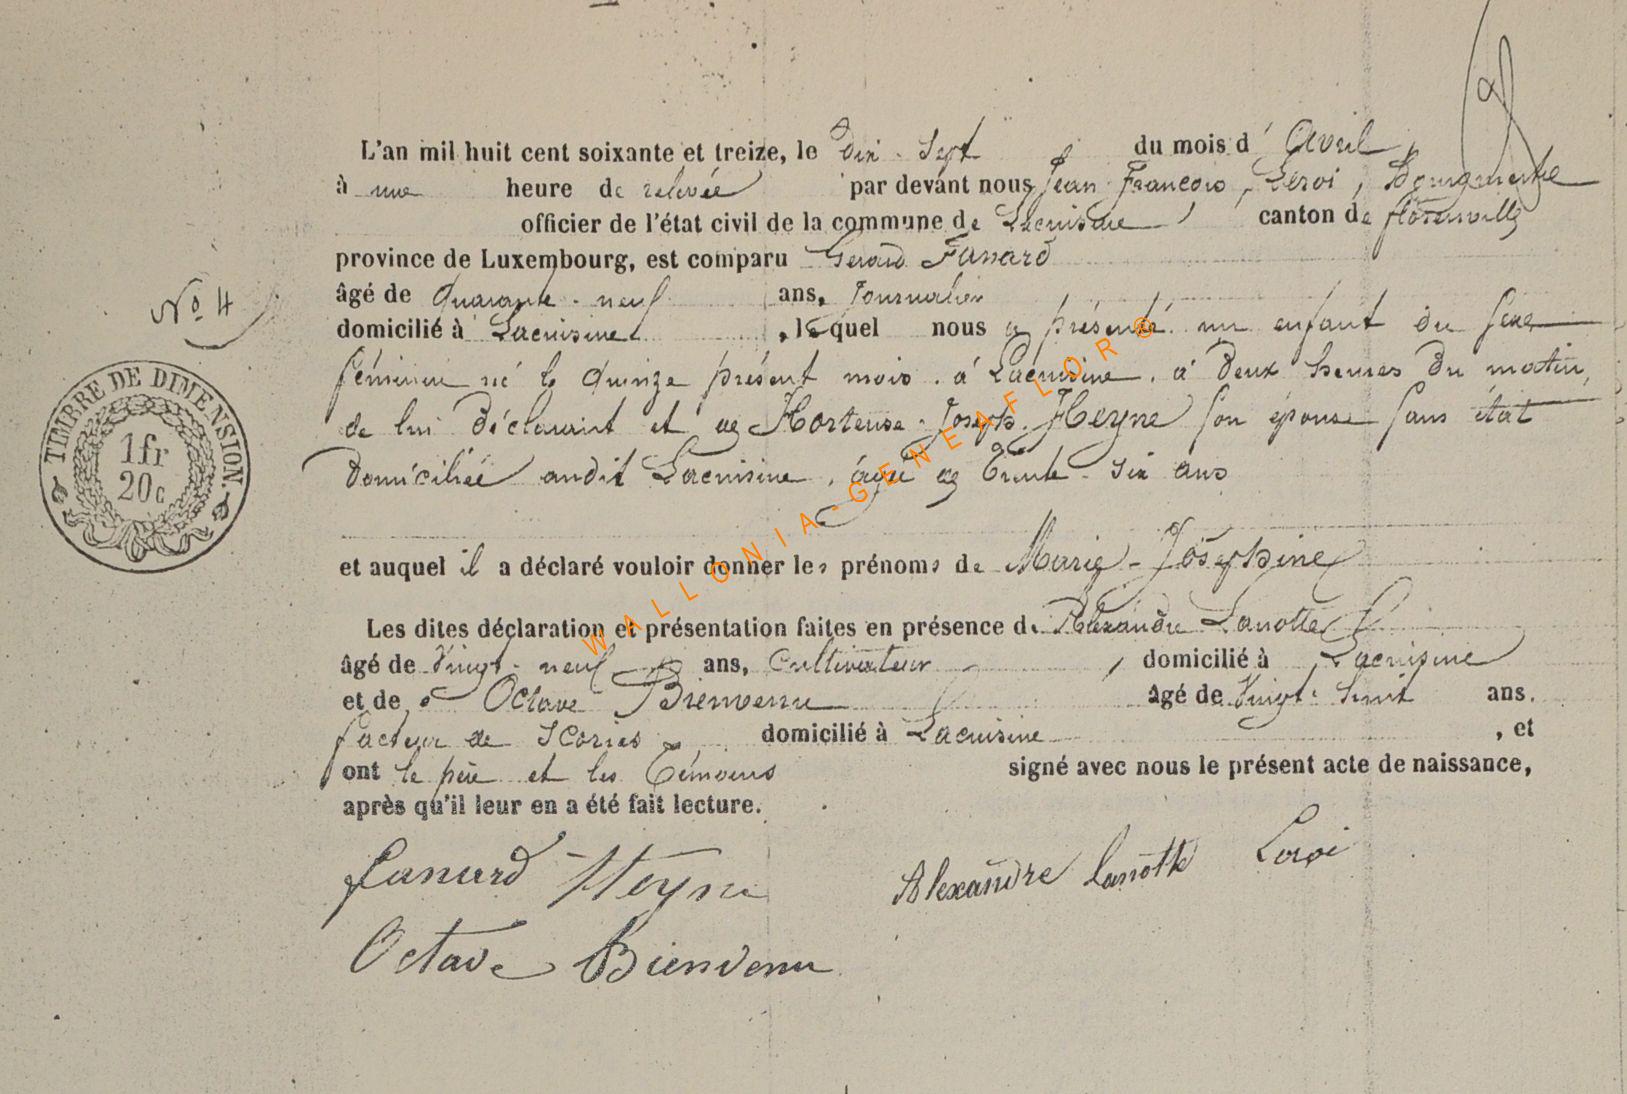 L'an mil huit cent soixante et treize, le dix-sept du mois d'Avril,
à une heure de relevée par devant nous Jean François, Leroi, Bourgmestre
officier de l'état civil de la commune de Lacuisine, canton de florenville
province de Luxembourg, est comparu Gerard Fanard
âgé de quarante-neuf ans, Journalier
domicilié à Lacuisine, lequel nous a présenté un enfant du sexe
féminin né le quinze présent mois, à Lacuisine, à deux heures du matin,
de lui déclarant et de Hortense Joseph Heyne son épouse sans état
domiciliée audit Lacuisine, âgée de trente-six ans
et auquel il a déclaré vouloir donner les prénoms de Marie-Joséphine
Les dites déclaration et présentation faites en présence de Alexandre Lanotte
âgé de vingt-neuf ans, cultivateur, domicilié à Lacuisine
et de Octave Bienvenu âgé de vingt-huit ans.
facteur de domicilié à Lacuisine, et
ont le père et les témoins signé avec nous le présent acte de naissance,
après qu'il leur en a été fait lecture.
fanard Heyne Alexandre Lanotte Leroi
Octave Bienvenu
No 4
TIMBRE DE DIMENSION
1fr
20c
WALLONIA-GENEAFLOR©